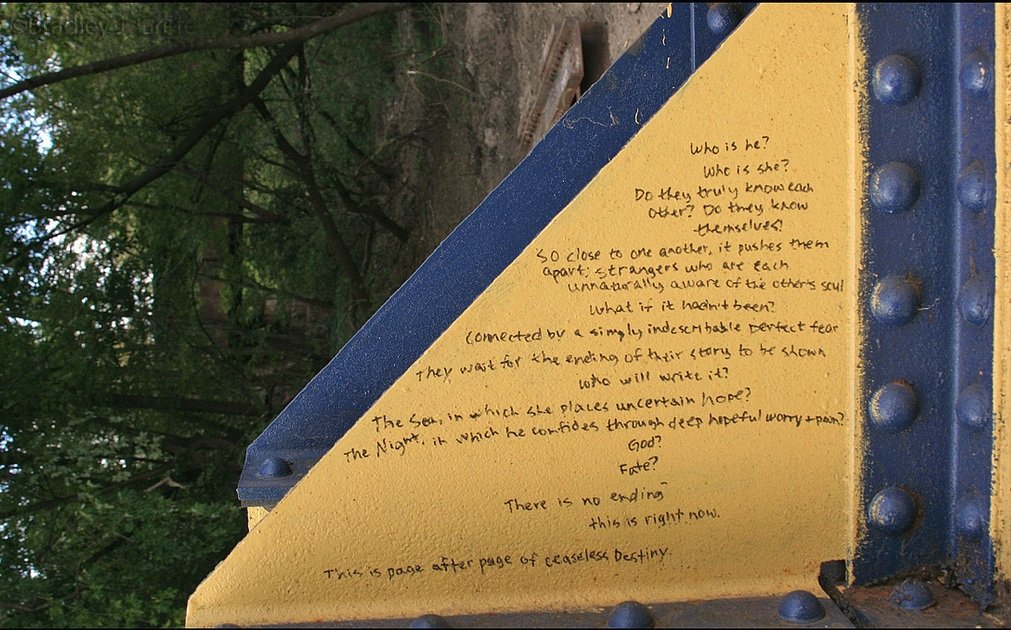 ©Bradley J.
Who is he?
Who is she?
Do they truly know each
other? Do they know
themselves?
So close to one another, it pushes them
apart; strangers who are each
unnaturally aware of the other's soul
What if it hadn't been?
Connected by a simply indescribable perfect fear
They wait for the ending of their story to be shown
Who will write it?
The Sea, in which she places uncertain hope?
The Night, in which he confides through deep hopeful worry + pain?
God?
Fate?
There is no ending
this is right now.
This is page after page of ceaseless Destiny.